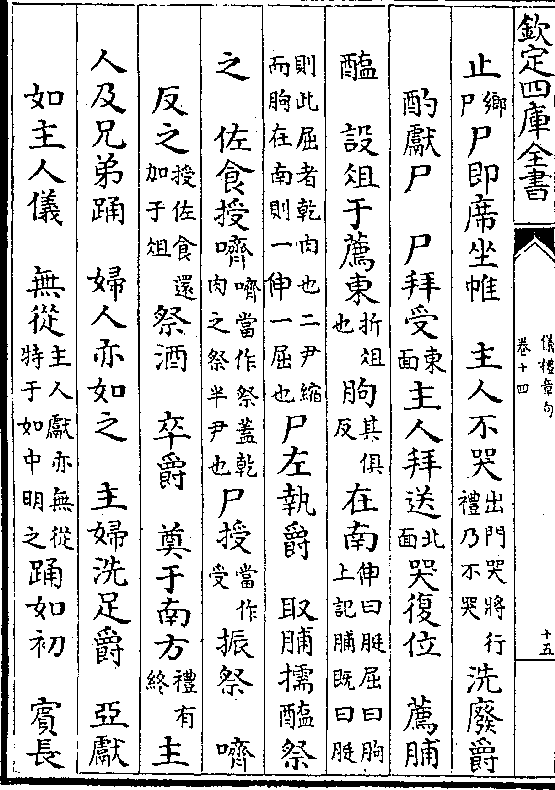 欽定四庫全書
儀禮章句
卷十四
十五
止鄉尸尸即席坐惟 主人不哭出門哭將行禮乃不哭洗廢爵
酌獻尸 尸拜受東面主人拜送北面哭復位 薦脯
醢 設俎于薦東折俎也朐其俱反在南伸曰脡屈曰朐上記脯既曰脡
則此屈者乾肉也二尹縮而朐在南則一伸一屈也尸左執爵 取脯擩醢祭
之 佐食授嚌嚌當作祭蓋乾肉之祭半尹也尸授當作受振祭 嚌
反之授佐食還加于俎祭酒 卒爵 奠于南方禮有終主
人及兄弟踊 婦人亦如之 主婦洗足爵 亞獻
如主人儀 無從主人獻亦無從特于如中明之踊如初 賓長